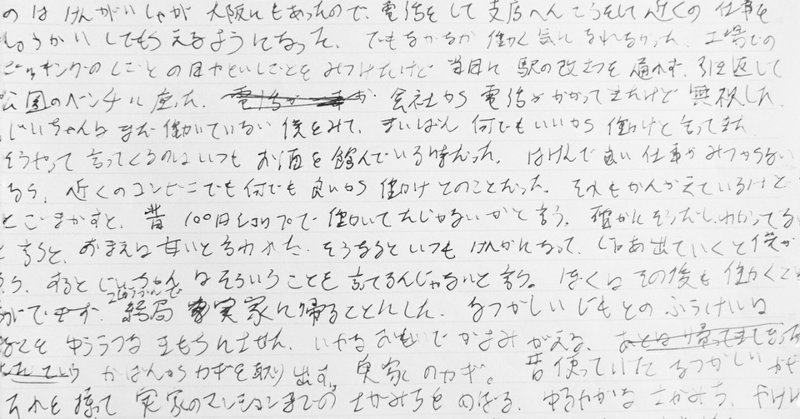 のは はけんがいしゃが 大阪にもあったので、電話をして 支店へんこうをして 近くの 仕事を
しょうかい してもらえるようになった。でもなかなか 働く気になれなかった。工場での
ピッキングのしごとの日やといしごとを みつけたけど 当日に 駅の改さつを 通れず、引き返して
公園のベンチに座った。会社から 電話がかかってきたけど 無視した。
じいちゃんは まだ 働いていない 僕をみて、まいばん 何でもいいから 働けと言ってきた
そうやって 言ってくるのはいつも お酒を飲んでいる時だった。はけんで良い 仕事がみつからない
なら、近くのコンビニでも何でも良いから 働け とのことだった。それもかんがえているけど
とごまかすと、昔 100円ショップで 働いてたじゃないかと言う。確かにそうだし、わかってる
と言うと、おまえは甘いと言われた。そうなるといつも けんかになって、じゃあ出ていくと僕が
言う。すると じいちゃんは そういうことを 言ってるんじゃないと言う。ぼくは その後も 働くこと
ができず、結局 実家に帰ることにした。なつかしい じもとの ふうけいは
ゆううつな きもちにさせた。いやな おもいで がよみがえる。
かばんからカギを取り出す。実家 のカギ。昔使っていた なつかしい
それを 持って 実家のマンションまでの さかみちを のぼる。ゆるやかな さかみち。